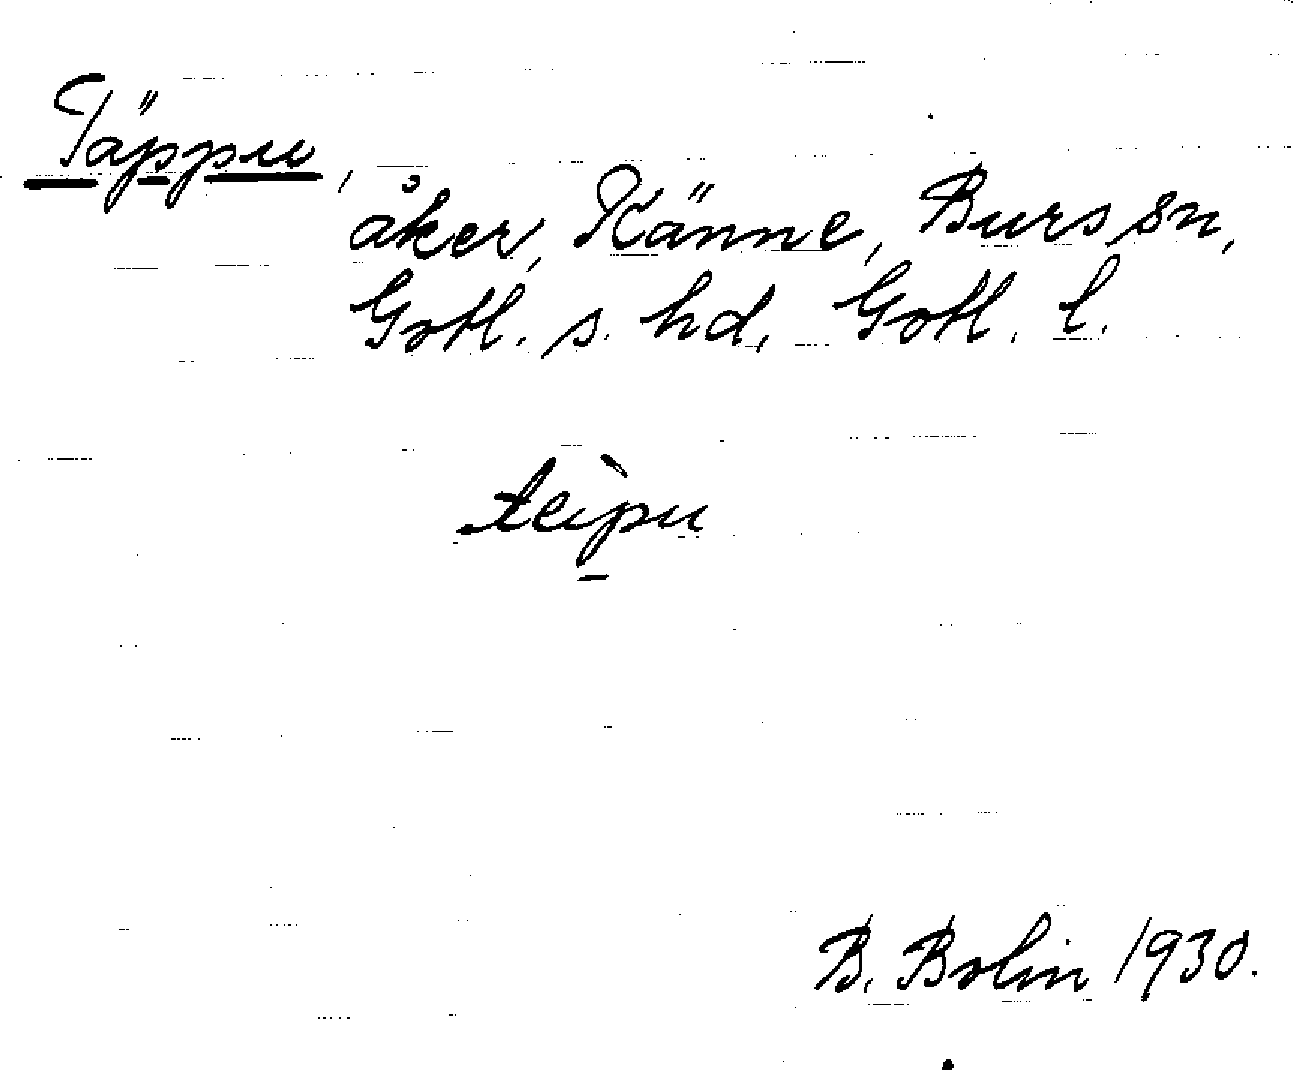 Täppu,
åker, Känne, Burs sn,
Gotl. s. hd, Gotl. l.
teìpu
B. Bolin 1930.